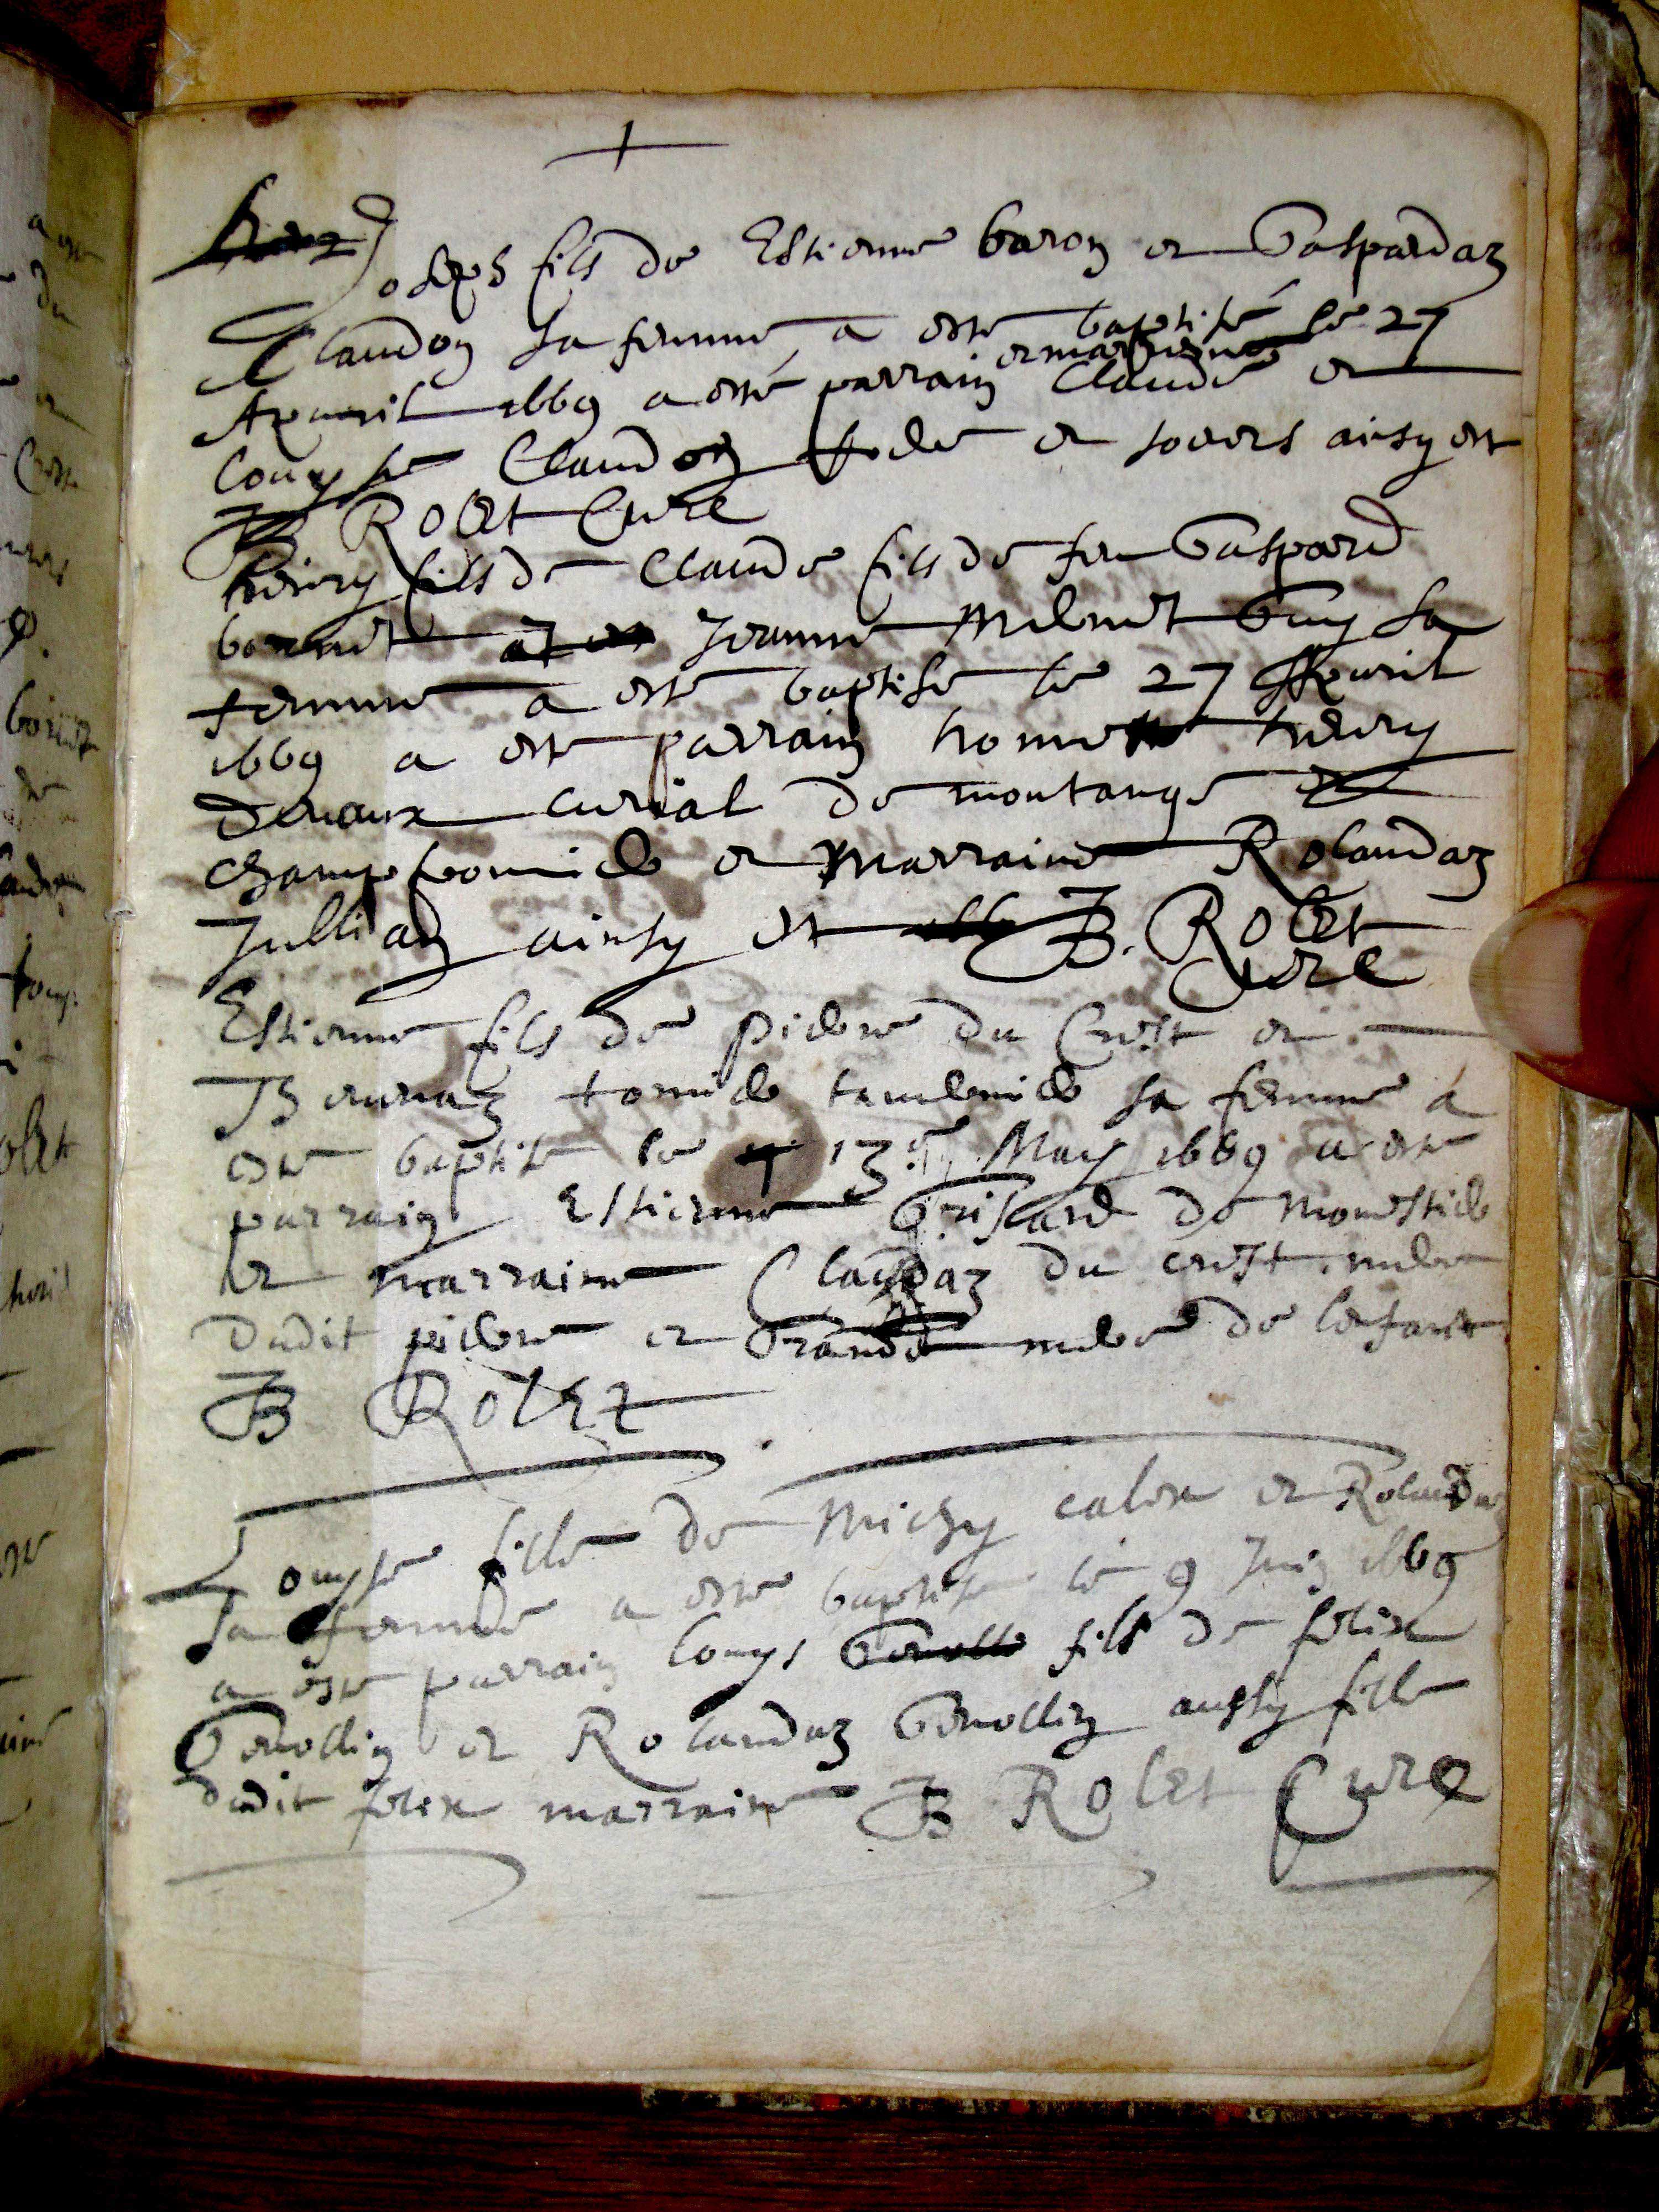 +
Joseph fils de Estienne baron et Gaspardaz
Claudon sa femme a esté baptisé le 27
Apvril 1669 a esté parrain et marraine Claude et
Louyse Claudon frere et soeurs ainsy est
JB Rolet Curé
henry fils de Claude fils de feu Gaspard
bornet Jeanne Mermet Guy sa
femme a esté baptise le 27 Apvril
1669 a esté parrain honneste henry
Devaux curial de montange et
champfromier et Marraine Rolandaz
Julliaz ainsy est JB. Rolet
Curé
Estienne fils de pierre du Crest et
Thevenaz tornier tavernier sa femme a
esté baptise le 13e May 1669 a esté
parrain Estienne Grisard de Monestier
et marraine Claudaz du crest mere
dudit pierre et Grande mere de lenfant
JB Rolet
Louyse fille de Michy et Rolandaz
sa femme a esté baptise le 9 Juin 1669
a este parrain Louys fils de felix
Genollin et Rolandaz Genollin aussy fille
dudit felix marraine JB Rolet Curé